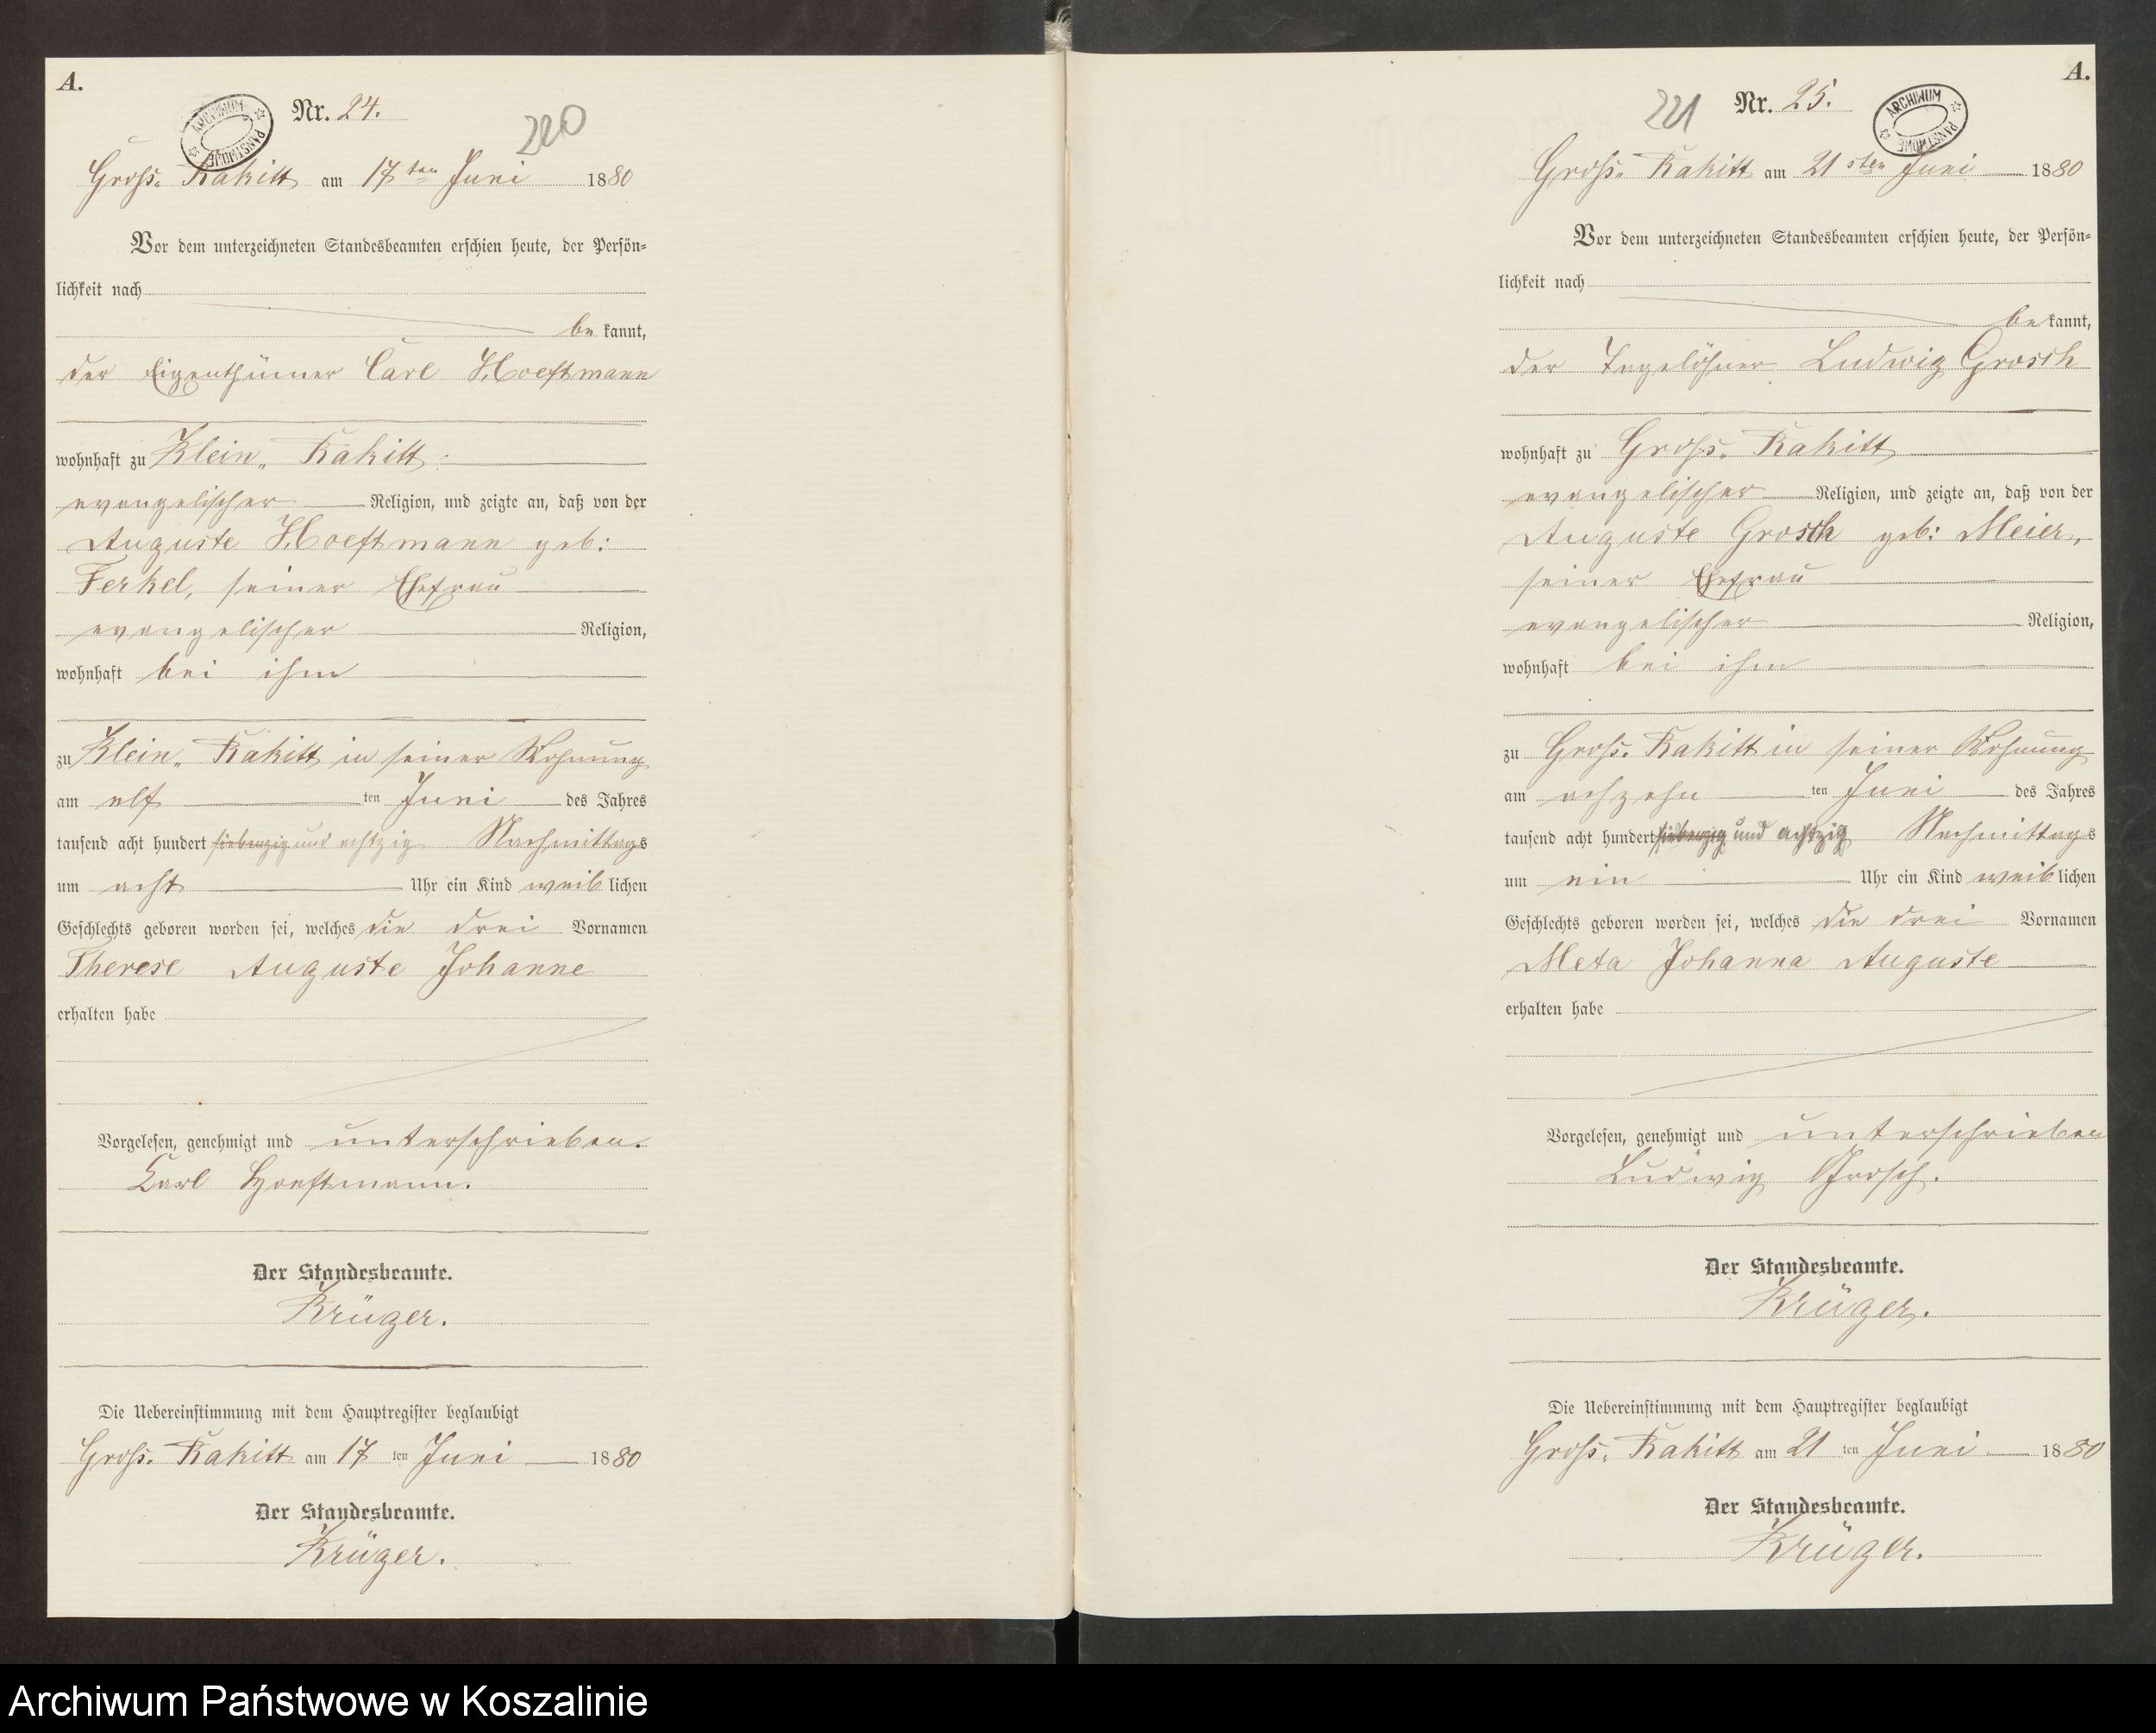 A.
ARCHIWUM PAŃSTWOWE
Nr. 24.
220
Groß. Rakitt am 17ten Juni 1880
Vor dem unterzeichneten Standesbeamten erschien heute, der Persön-
lichkeit nach
be kannt,
der Eigenthümer Carl Hoeftmann
wohnhaft zu Klein. Rakitt
evangelischer Religion, und zeigte an, daß von der
Auguste Hoeftmann geb:
Ferkel, seiner Ehefrau
evangelischer Religion,
wohnhaft bei ihm
zu Klein. Rakitt in seiner Wohnung
am elf ten Juni des Jahres
tausend acht hundert siebenzig und achtzig Nachmittags
um acht Uhr ein Kind weib lichen
Geschlechts geboren worden sei, welches die drei Vornamen
Therese Auguste Johanne
erhalten habe
Vorgelesen, genehmigt und unterschrieben.
Carl Hoeftmann.
Der Standesbeamte.
Krüger.
Die Uebereinstimmung mit dem Hauptregister beglaubigt
Groß. Rakitt am 17 ten Juni 1880
Der Standesbeamte.
Krüger.
A.
221
Nr. 25.
ARCHIWUM PAŃSTWOWE
Groß. Rakitt am 21sten Juni 1880
Vor dem unterzeichneten Standesbeamten erschien heute, der Persön-
lichkeit nach
be kannt,
der Tagelöhner Ludwig Grosch
wohnhaft zu Groß. Rakitt
evangelischer Religion, und zeigte an, daß von der
Auguste Grosch geb: Meier,
seiner Ehefrau
evangelischer Religion,
wohnhaft bei ihm
zu Groß. Rakitt in seiner Wohnung
am achzehn ten Juni des Jahres
tausend acht hundert siebenzig und achtzig Nachmittags
um ein Uhr ein Kind weib lichen
Geschlechts geboren worden sei, welches die drei Vornamen
Meta Johanna Auguste
erhalten habe
Vorgelesen, genehmigt und unterschrieben
Ludwig Grosch.
Der Standesbeamte.
Krüger.
Die Uebereinstimmung mit dem Hauptregister beglaubigt
Groß. Rakitt am 21 ten Juni 1880
Der Standesbeamte.
Krüger.
Archiwum Państwowe w Koszalinie